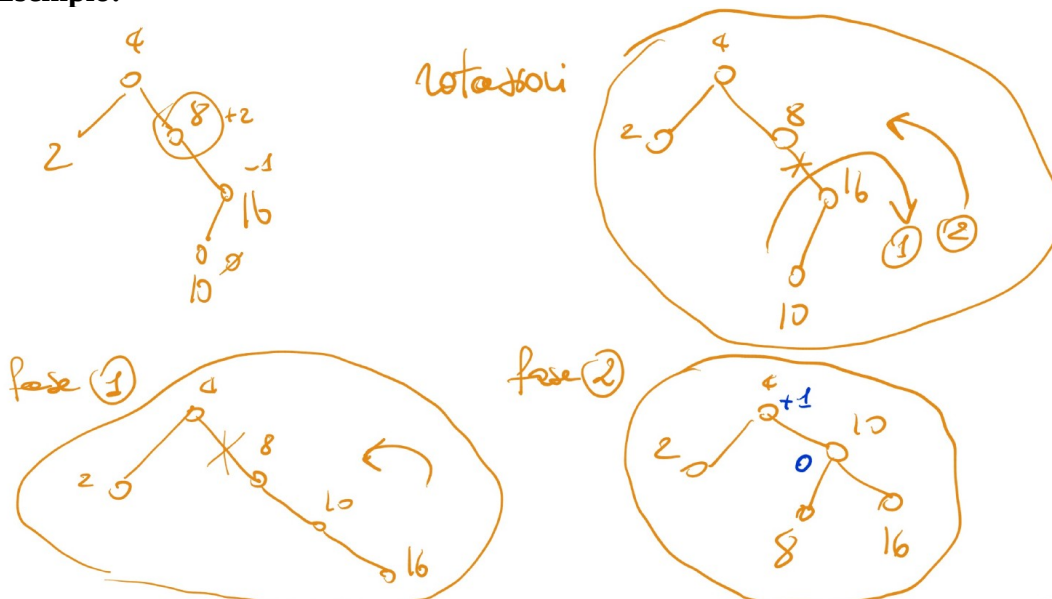 Esempio:
4
8 +2
2
-1
16
0
10 ø
rotazioni
4
2
8
16
1
2
10
fase 1
4
2
8
10
16
fase 2
4 +1
2
10
0
8
16